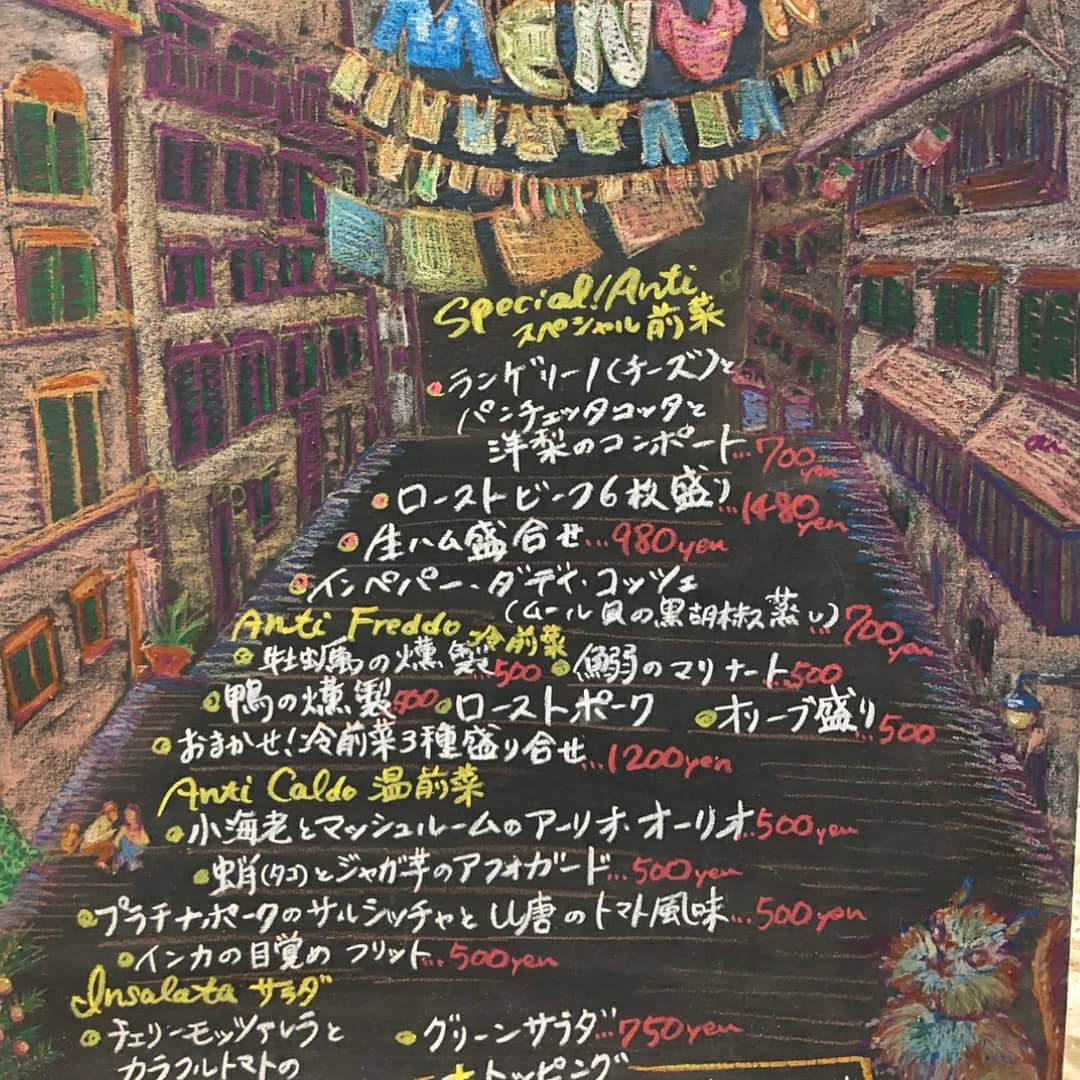 MENU
Special! Anti
スペシャル前菜
ランゲリーノ(チーズ)と
パンチェッタコッタと
洋梨のコンポート...700yen
ローストビーフ6枚盛り...1480yen
生ハム盛合せ...980yen
インペパータ・ディ・コッツェ
(ムール貝の黒胡椒蒸し)...700yen
Anti Freddo 冷前菜
牡蠣の燻製500 鰯のマリナート...500
鴨の燻製500 ローストポーク オリーブ盛り...500
おまかせ!冷前菜3種盛り合せ...1200yen
Anti Caldo 温前菜
小海老とマッシュルームのアーリオ・オーリオ...500yen
蛸(タコ)とジャガ芋のアフォガード...500yen
プラチナポークのサルシッチャと山唐のトマト風味...500yen
インカの目覚め フリット...500yen
Insalata サラダ
チェリーモッツァレラと グリーンサラダ...750yen
カラフルトマトの +トッピング